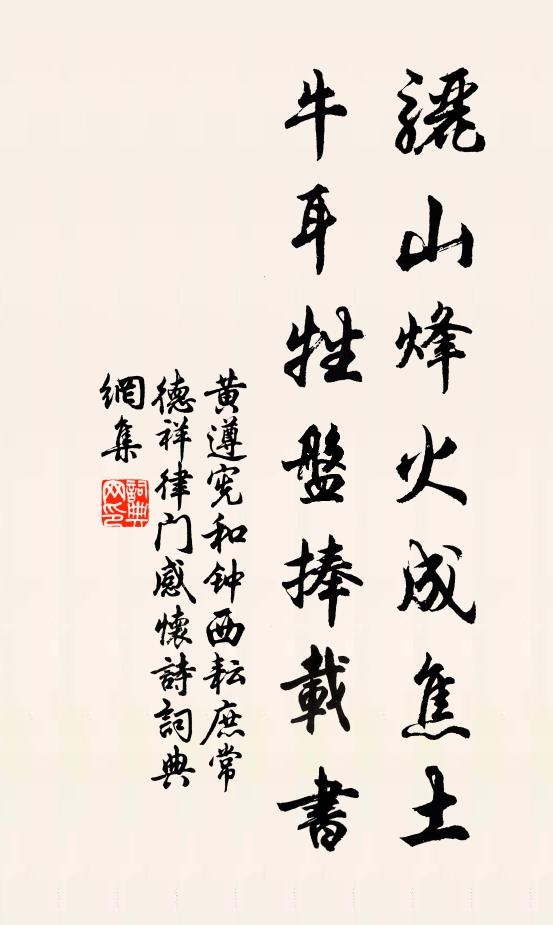 驪山烽火成焦土
牛耳牲盤捧載書
黃遵宪和钟西耘庶常
德祥律门感懷詩詞典
網集
詞典
网印